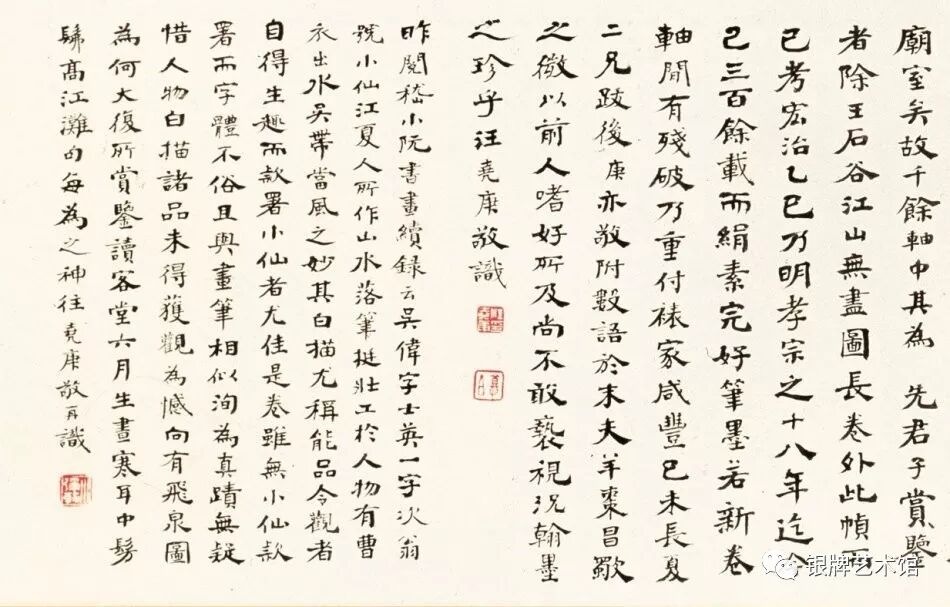 廟室矣故千餘軸中其為 先君子賞鑒
者除王石谷江山無盡圖長卷外此幀而
已考宏治乙巳乃明孝宗之十八年迄今
已三百餘載而絹素完好筆墨若新卷
軸閒有殘破乃重付裱家咸豐己未長夏
二兄跋後庚亦敬附數語於末夫羊棗昌歜
之微以前人嗜好所及尚不敢褻視況翰墨
之珍乎汪堯庚敬識
昨閱嵇小阮書畫續録云吳偉字士英一字次翁
號小仙江夏人所作山水落筆挺壯工於人物有曹
衣出水吳帶當風之妙其白描尤稱能品今觀者
自得生趣而款署小仙者尤佳是卷雖無小仙款
署而字體不俗且與畫筆相似洵為真蹟無疑
惜人物白描諸品未得獲觀為憾向有飛泉圖
為何大復所賞鑒讀客堂六月生晝寒耳中髣
髴高江灘句每為之神往堯庚敬再識
银牌艺术馆